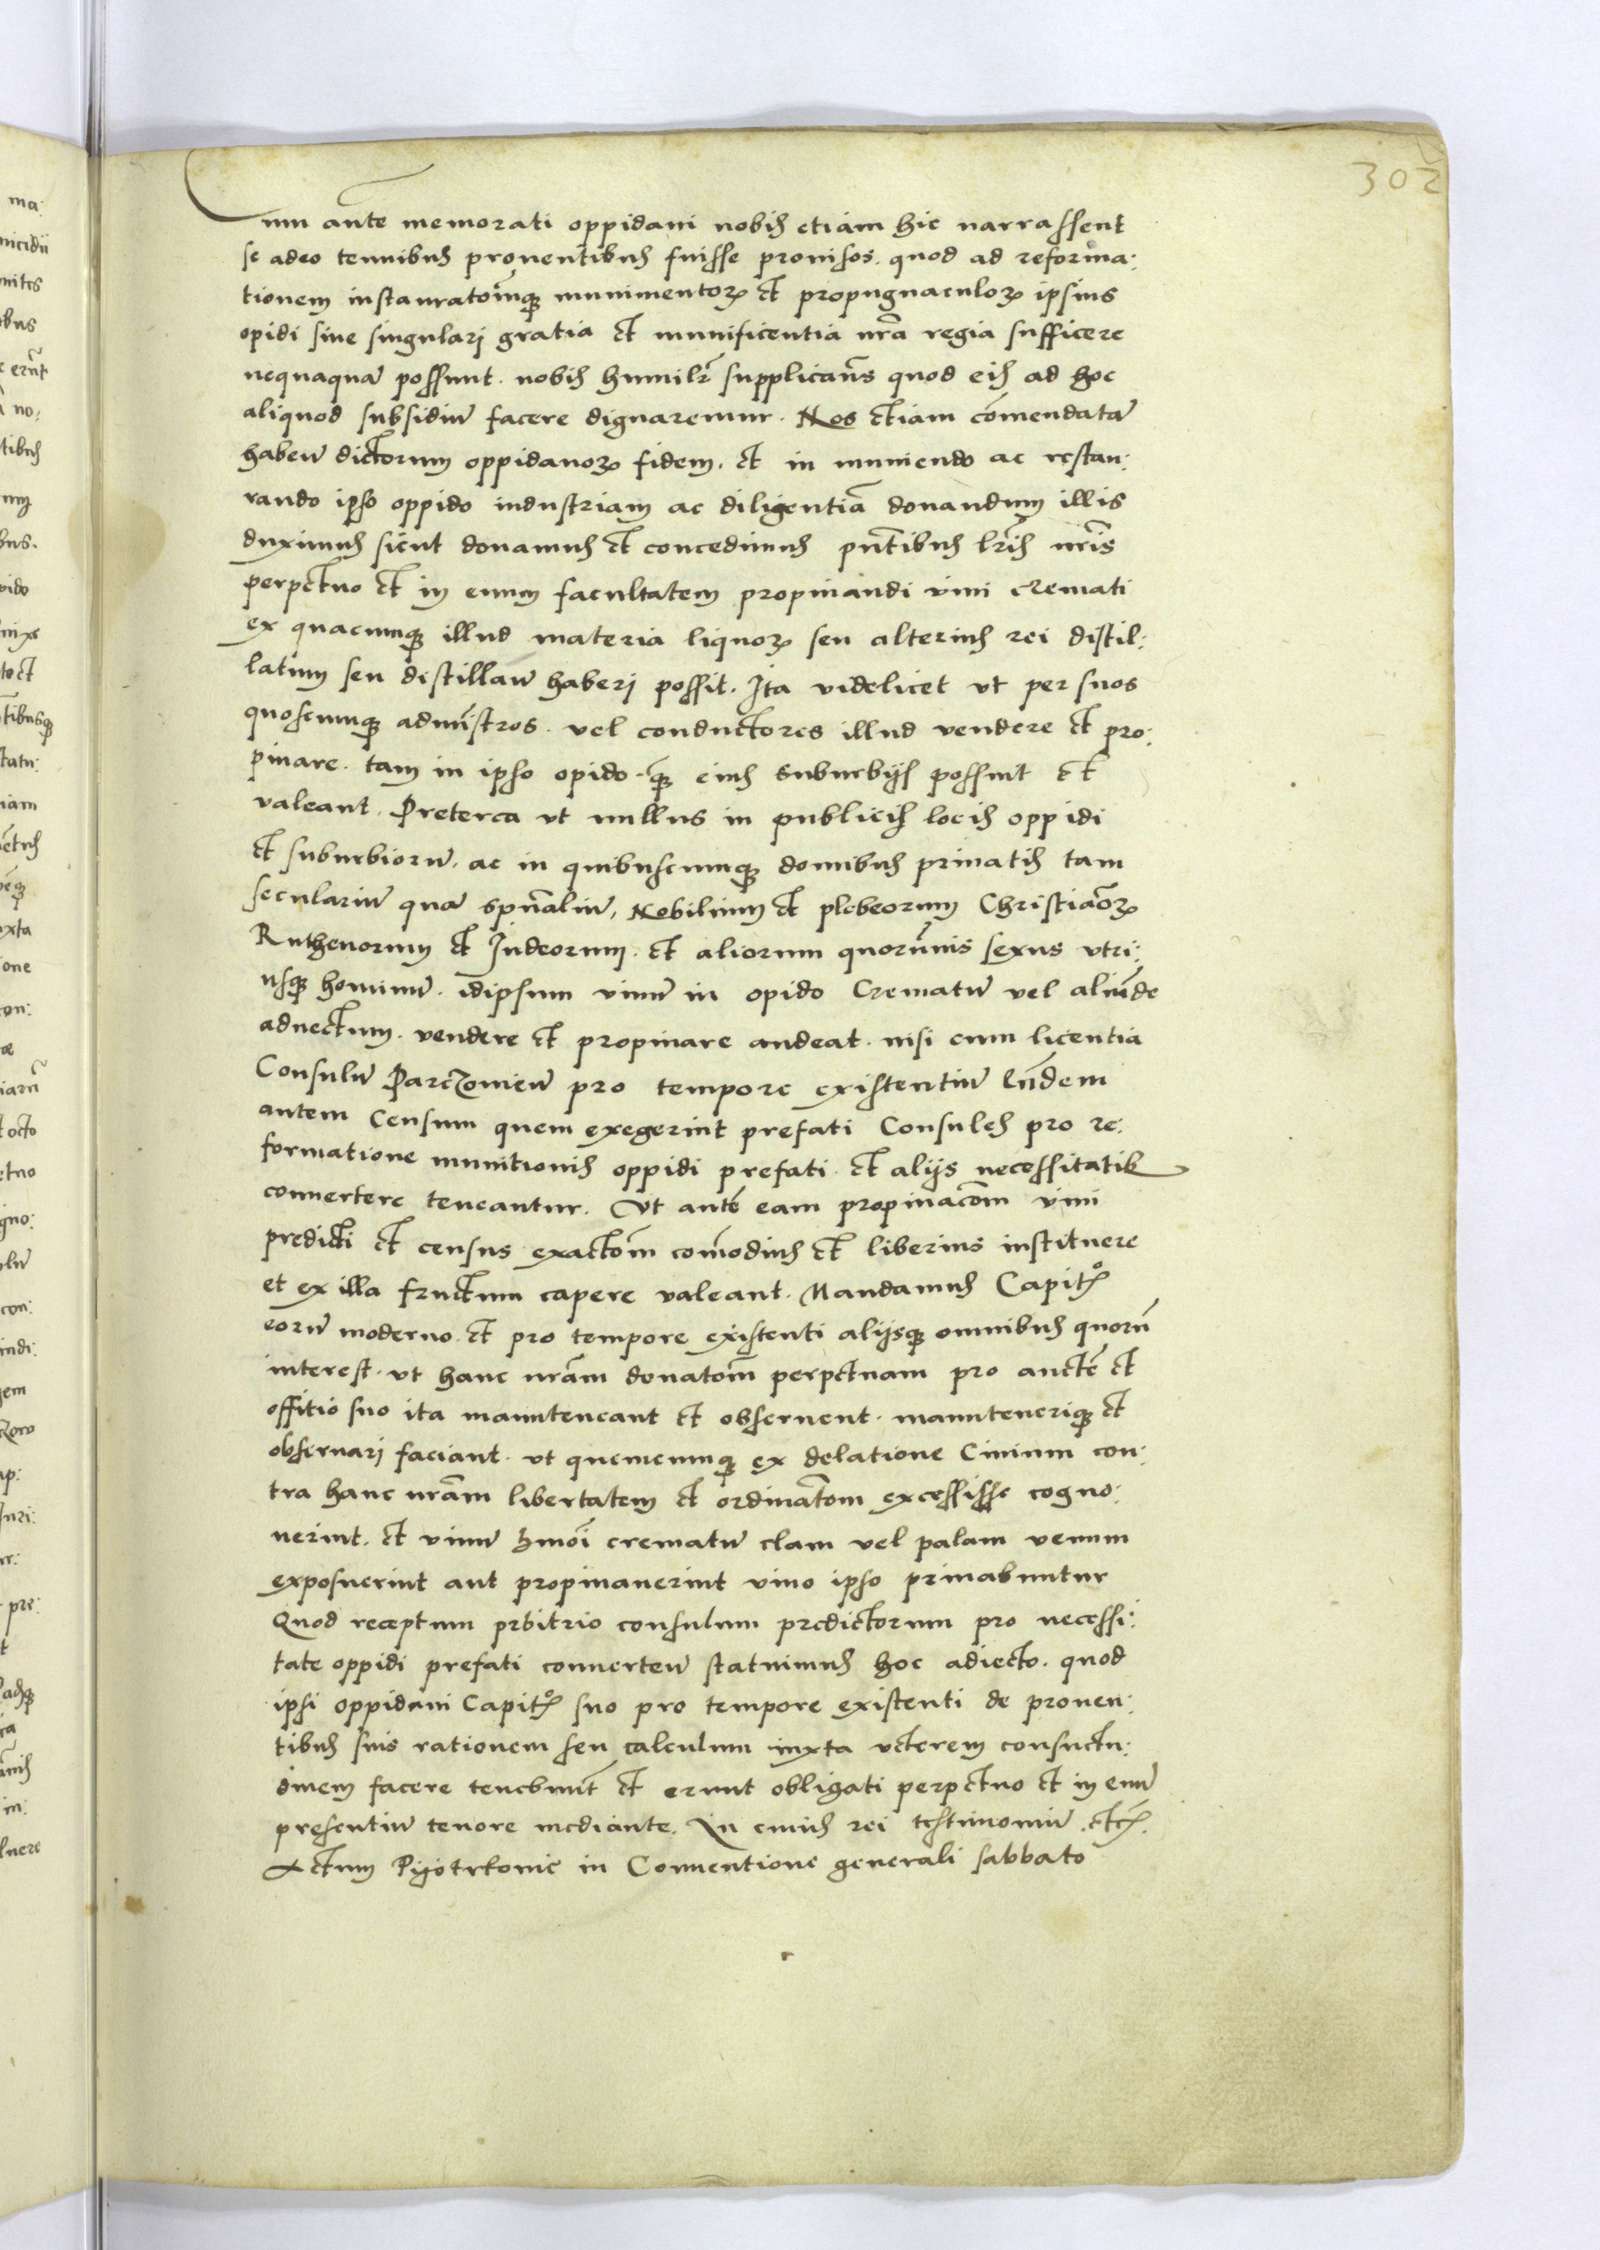 302
Cum ante memorati oppidani nobis etiam hic narrassent
se adeo tenuibus prouentibus fuisse prouisos. quod ad reforma:
tionem instauratoĩmq3 munimentoꝝ et propugnaculoꝝ ipsius
opidi sine singulari gratia et munificentia nr̃a regia sufficere
nequaquã possunt. nobis humilr̃ supplicañs quod eis ad hoc
aliquod subsidiũ facere dignaremur. Nos etiam cõmendatã
habeñ dictorum oppidanoꝝ fidem. et in muniendo ac restau:
rando ipso oppido industriam ac diligentiã donandum illis
duximus sicut donamus et concedimus pñtibus lr̃is nr̃is
perpetuo et in euum facultatem propinandi vini cremati
ex quacumq3 illud materia liquoꝝ seu alterius rei distil:
latum seu distillañ haberi possit. Ita videlicet vt per suos
quoscumq3 adm̃istros. vel conductores illud vendere et pro:
pinare. tam in ipso opido. q̃3 eius suburbijs possint et
valeant. Preterea vt nullus in publicis locis oppidi
et suburbiorũ. ac in quibuscumq3 domibus priuatis tam
seculariũ quã spũaliũ, Nobilium et plebeorum Christiãoꝝ
Ruthenorum et Iudeorum. et aliorum quorũuis sexus vtri:
usq3 hominũ. idipsum vinũ in opido Crematũ vel aliũde
aduectum. vendere et propinare audeat. nisi cum licentia
Consulũ Parczouieñ pro tempore existentiũ Eũdem
autem Censum quem exegerint prefati Consules pro re:
formatione munitionis oppidi prefati. et alijs necessitatib
conuertere teneantur. Vt autẽ eam propinacõm vini
predicti et census exactõm comõdius et liberius instituere
et ex illa fructum capere valeant. Mandamus Capitꝰ
eorũ moderno. et pro tempore existenti alijsq3 omnibus quorũ
interest. vt hanc nr̃am donatoĩm perpetuam pro auctẽ et
offitio suo ita manuteneant et obseruent. manuteneriq3 et
obseruari faciant. vt quemcumq3 ex delatione Ciuium con:
tra hanc nr̃am libertatem et ordinatõm excessisse cogno:
uerint. et vinũ hmoĩ crematũ clam vel palam venum
exposuerint aut propinauerint vino ipso priuabuntur
Quod receptum arbitrio consulum predictorum pro necessi:
tate oppidi prefati conuerteñ statuimus hoc adiecto. quod
ipsi oppidani Capitꝰ suo pro tempore existenti de prouen:
tibus suis rationem seu calculum iuxta veterem consuetu:
dinem facere tenebunt̃ et erunt obligati perpetuo et in euũ
presentiũ tenore mediante. In cuius rei testimoniũ etc̃.
Actum Pyotrkouie in Conuentione generali sabbato